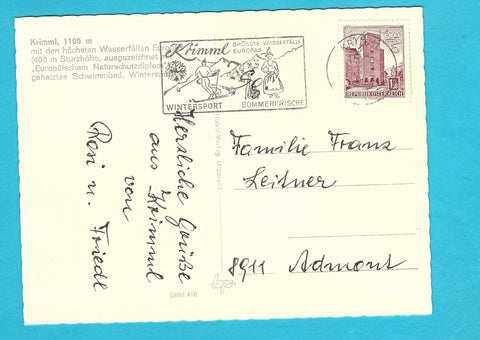 Krimml, 1100 m
mit den höchsten Wasserfällen Euro
(400 m Sturzhöhe, ausgezeichnet
„Europäischem Naturschutzdiplom"
geheiztes Schwimmbad, Winterspo
Krimml GRÖSSTE WASSERFÄLLE
EUROPAS
WINTERSPORT SOMMERFRISCHE
REPUBLIK ÖSTERREICH
Herzliche Grüße
aus Krimml
von
Rosi u. Friedl
Familie Franz
Leitner
8911 Admont
EHM 410